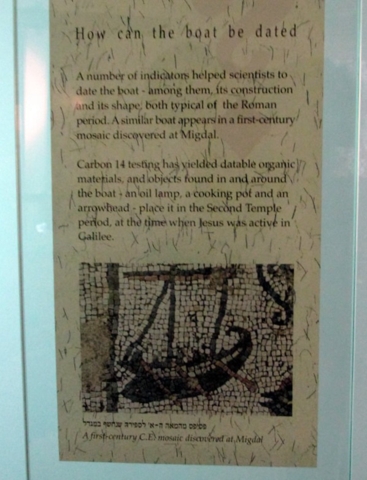 How can the boat be dated
A number of indicators helped scientists to
date the boat - among them, its construction
and its shape, both typical of the Roman
period. A similar boat appears in a first-century
mosaic discovered at Migdal.
Carbon 14 testing has yielded datable organic
materials, and objects found in and around
the boat - an oil lamp, a cooking pot and an
arrowhead - place it in the Second Temple
period, at the time when Jesus was active in
Galilee.
פסיפס מהמאה ה-א' לספירה שנחשף במגדל
A first-century C.E. mosaic discovered at Migdal